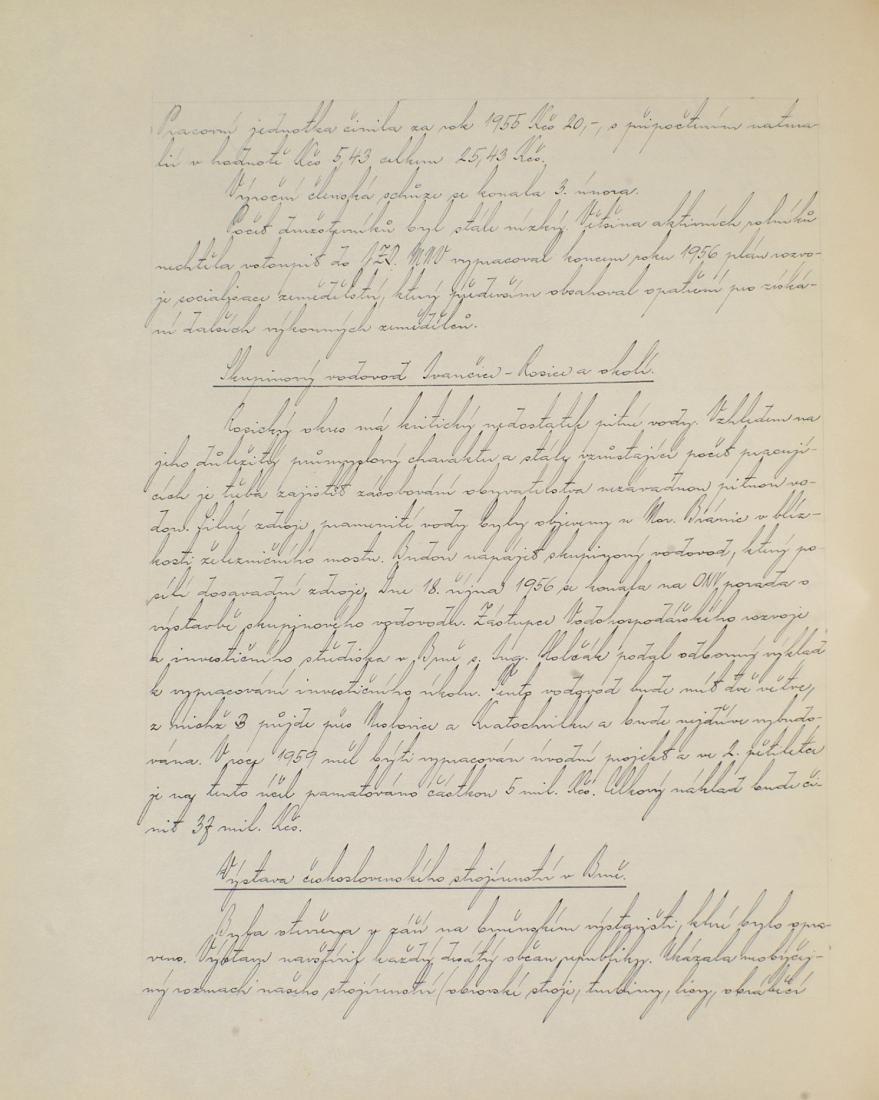 Pracovní jednotka činila za rok 1955 Kčs 20,-, s připočtením natura-
lií v hodnotě Kčs 5,43 celkem 25,43 Kčs.
Výroční členská schůze se konala 3. února.
Počet družstevníků byl stále nízký. Většina aktivních rolníků
nechtěla vstoupit do JZD. MNV vypracoval koncem roku 1956 plán rozvo-
je socialisace zemědělství, který především obsahoval opatření pro získá-
ní dalších výkonných zemědělců.
Skupinový vodovod Ivančice - Rosice a okolí.
Rosický okres má kritický nedostatek pitné vody. Vzhledem na
jeho důležitý průmyslový charakter a stále vzrůstající počet pracují-
cích je třeba zajistit zásobování obyvatelstva nezávadnou pitnou vo-
dou. Silné zdroje pramenité vody byly objeveny u Mor. Bránic v blíz-
kosti železničního mostu. Budou napájet skupinový vodovod, který po-
sílí dosavadní zdroje. Dne 18. října 1956 se konala na ONV porada o
výstavbě skupinového vodovodu. Zástupce Vodohospodářského rozvoje
a investičního střediska v Brně s. Ing. Holčák podal odborný výklad
k vypracování investičního úkolu. Tento vodovod bude mít dvě větve,
z nichž B půjde přes Neslovice a Kratochvilku a bude nejdříve vybudo-
vána. V roce 1959 měl býti vypracován úvodní projekt a ve 2. pětiletce
je na tento účel pamatováno částkou 5 mil. Kčs. Celkový náklad bude či-
nit 37 mil. Kčs.
Výstava československého strojírenství v Brně.
Byla otevřena v září na brněnském výstavišti, které bylo opra-
veno. Výstavu navštívil každý desátý občan republiky. Ukázala neobyčej-
ný rozmach našeho strojírenství (obrovské stroje, turbiny, lisy, obráběcí